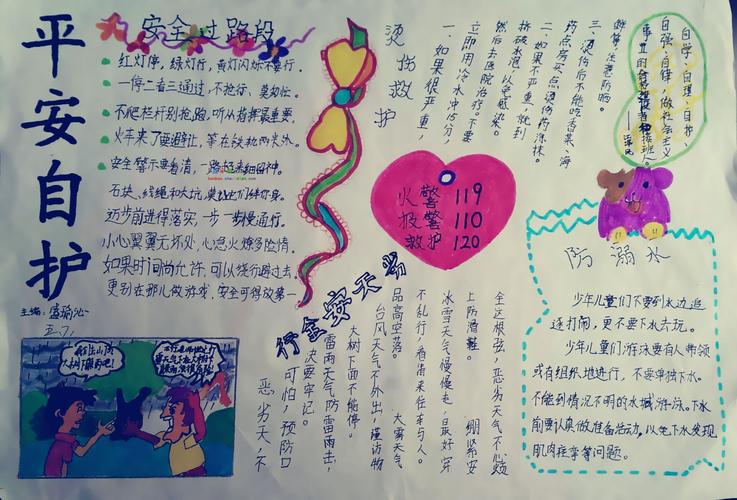 平安自护
主编：盛瑜沁
五.7.
安全过路段
红灯停，绿灯行，黄灯闪烁不要行。
一停二看三通过，不抢行、莫匆忙。
不爬栏杆别抢跑，听从指挥最重要。
火车来了要避让，等在铁轨两米外。
安全警示要看清，
石块、线绳和大坑，莫让它们绊你身。
迈步前进得落实，一步一步慢通行。
小心翼翼无坏处，心急火燎多险情。
如果时间尚允许，可以绕行避过去。
更别在那儿做游戏，安全可得放第一
烫伤救护
一、如果很严重，
立即用冷水冲15分，
然后去医院治疗。不要
挤破水泡，以免感染。
二、如果不严重，就到
药点房买点烫伤药涂抹。
三、烫伤后不能吃香菜、海
鲜等，注意防晒。
自学、自理、自护、
自强、自律，做社会主义
事业的合格建设者和接班人
火警 119
报警 110
救护 120
防溺水
少年儿童们不要到水边追
逐打闹，更不要下水去玩。
少年儿童们游泳要有人带领
或有组织地进行，不要单独下水。
不能到情况不明的水域游泳。下水
前要认真做准备活动，以免下水发现
肌肉痉挛等问题。
劣天安全行
恶劣天，不
可怕，预防口
决要牢记。
雷雨天气防雷雨击，
大树下面不能停。
台风天气不外出，谨防物
品高空落。大雾天气
不乱行，看清来往车与人。
冰雪天气慢慢走，最好穿
上防滑鞋。绷紧安
全这根弦，恶劣天气不心烦